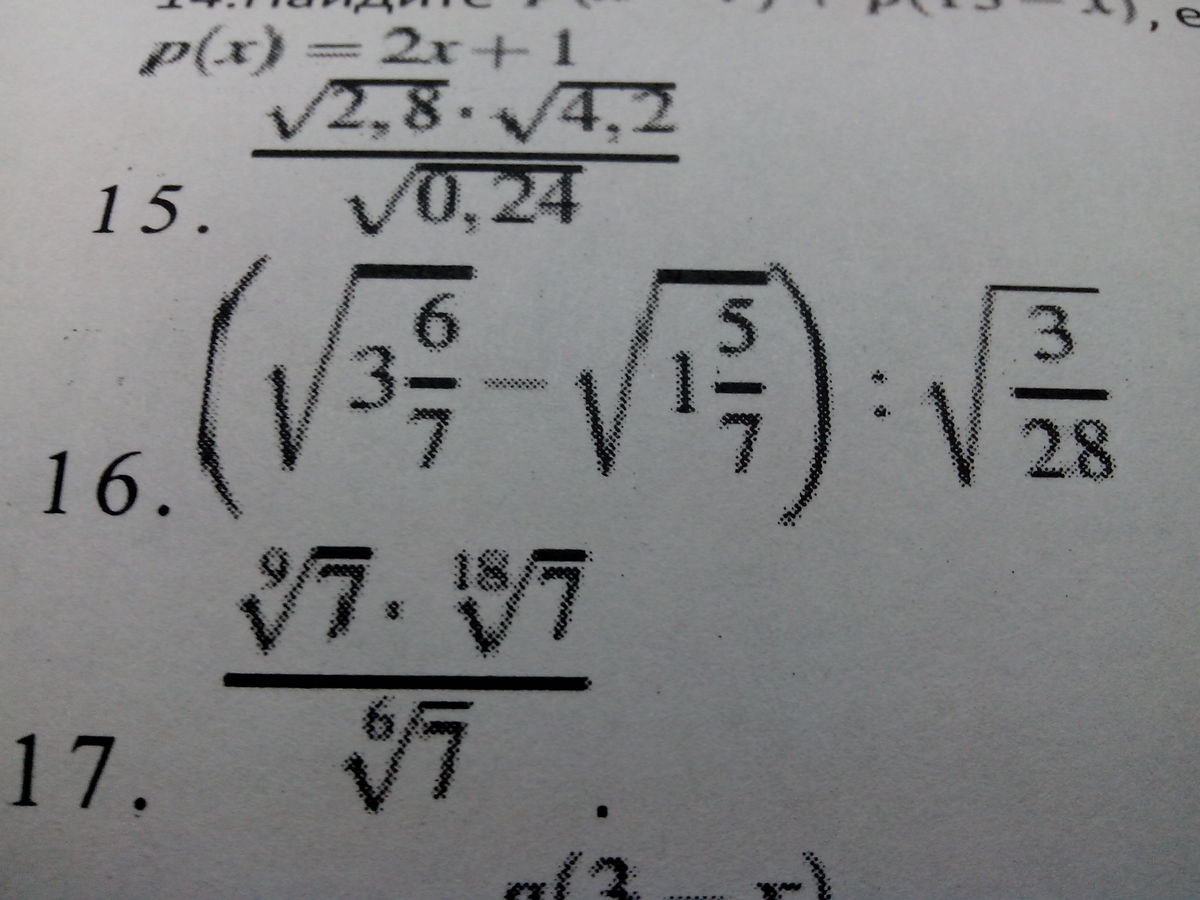 14. Найдите
p(x) = 2x + 1
15. \frac{\sqrt{2,8} \cdot \sqrt{4,2}}{\sqrt{0,24}}
16. \left( \sqrt{3\frac{6}{7}} - \sqrt{1\frac{5}{7}} \right) : \sqrt{\frac{3}{28}}
17. \frac{\sqrt[9]{7} \cdot \sqrt[18]{7}}{\sqrt[6]{7}} .